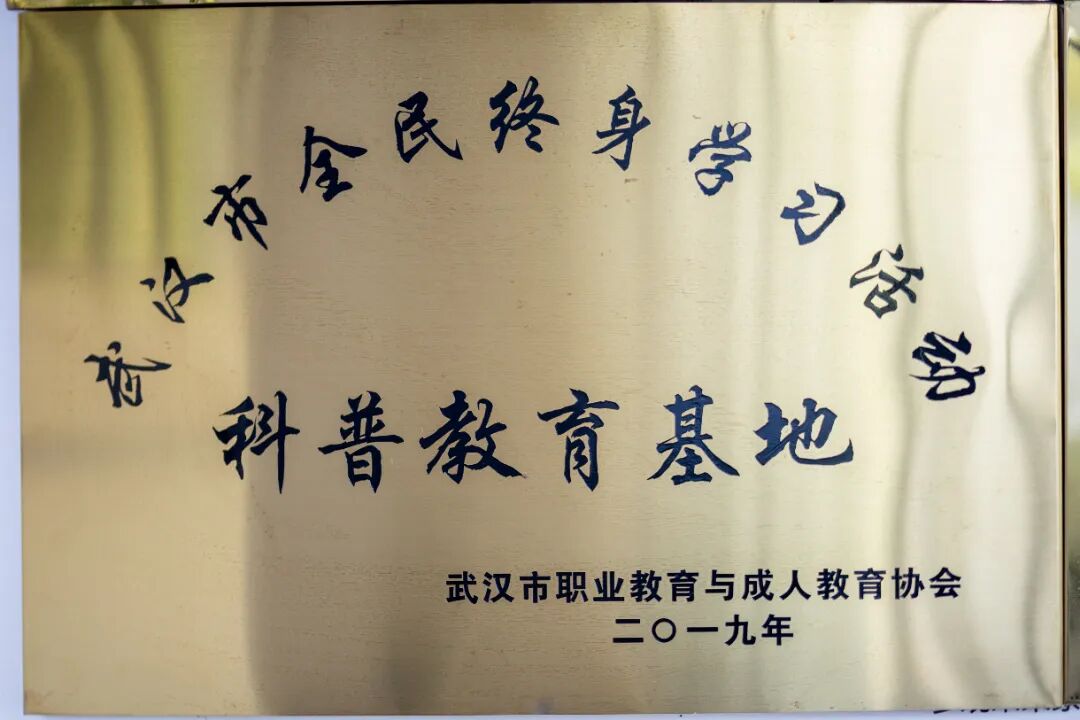 武汉市全民终身学习活动
科普教育基地
武汉市职业教育与成人教育协会
二〇一九年